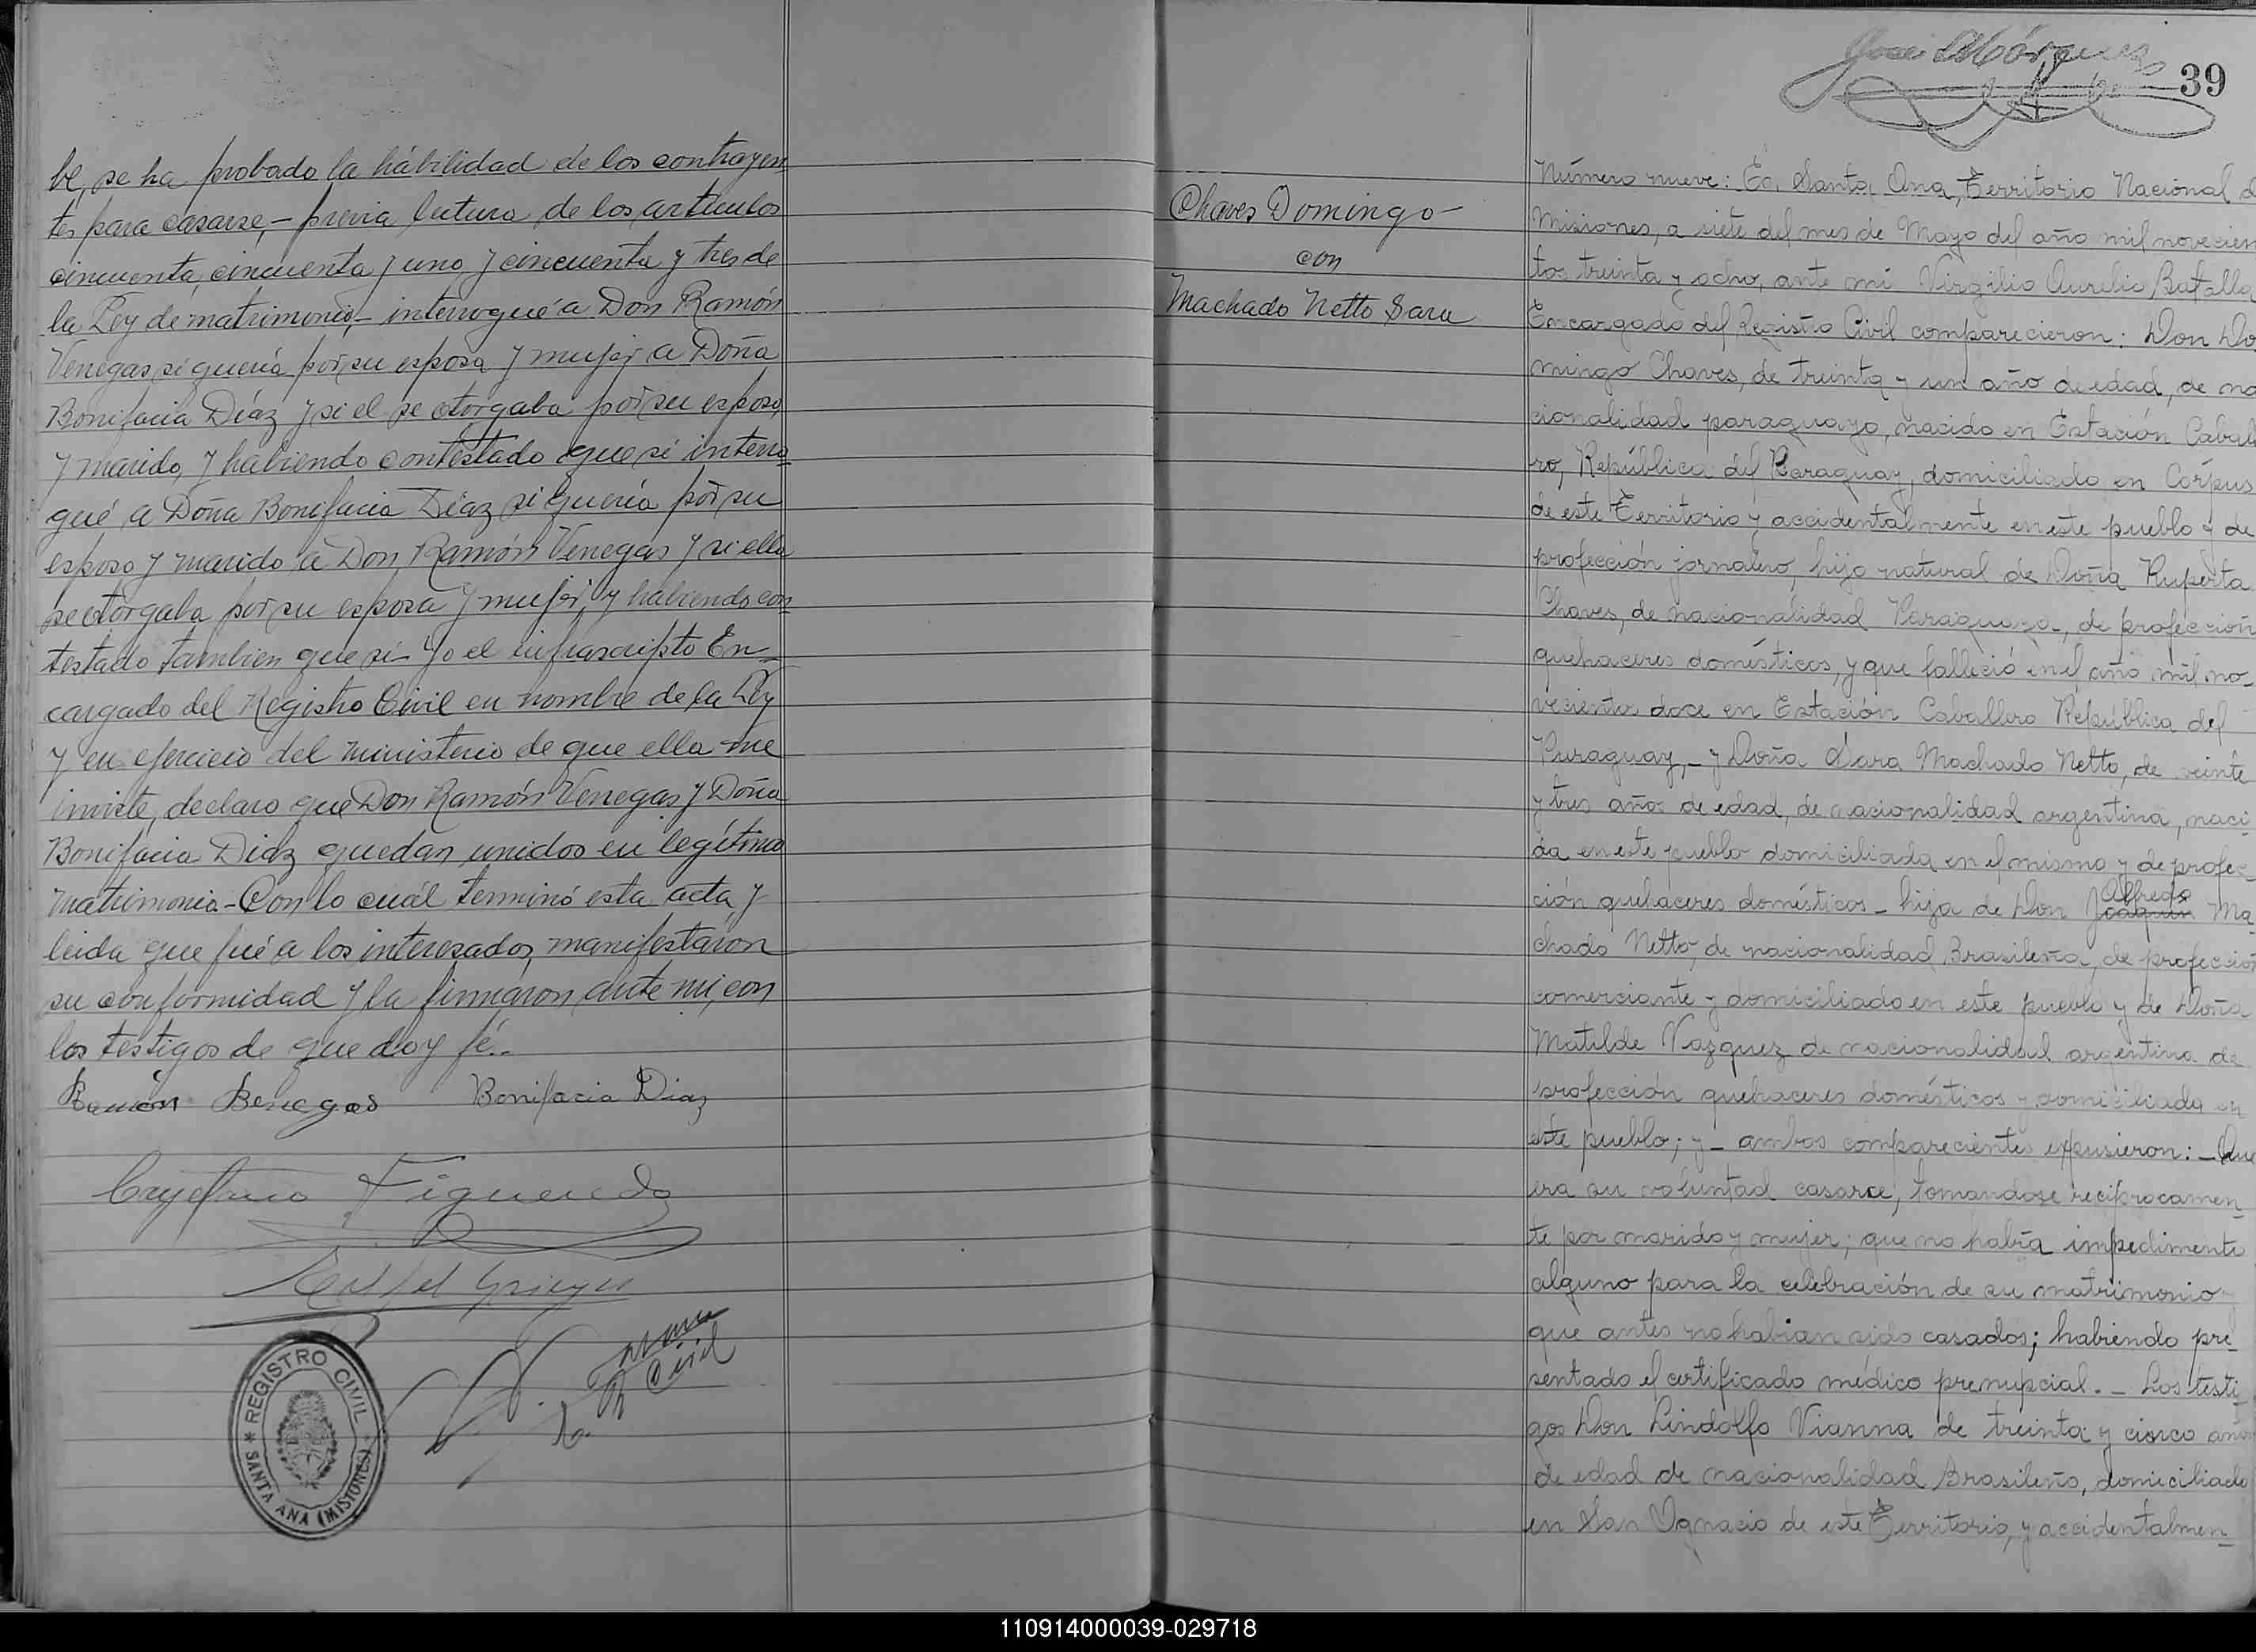 te, se ha probado la habilidad de los contrayen
tes para casarse,- previa lectura de los artículos
cincuenta, cincuenta y uno y cincuenta y tres de
la Ley de matrimonio,- interrogué a Don Ramón
Venegas, si quería por su esposa y mujer a Doña
Bonifacia Díaz y si el se otorgaba por su esposo
y marido, y habiendo contestado que si interro-
gué a Doña Bonifacia Díaz si quería por su
esposo y marido a Don Ramón Venegas y si ella
se otorgaba por su esposa y mujer, y habiendo con
testado tambien que si- Yo el infrascripto En-
cargado del Registro Civil en nombre de la Ley
y en ejercicio del ministerio de que ella me
inviste, declaro que Don Ramón Venegas y Doña
Bonifacia Díaz quedan unidos en legítimo
matrimonio- Con lo cuál terminó esta acta y
leida que fué a los interesados, manifestaron
su conformidad y la firmaron, ante mi, con
los testigos de que doy fé.-
Ramón Benegas Bonifacia Diaz
Cayetano Figueredo
REGISTRO CIVIL
SANTA ANA (MISIONES)
Civil
39
Chaves Domingo
con
Machado Netto Sara
Número nueve: En Santa Ana, Territorio Nacional de
Misiones, a siete del mes de Mayo del año mil novecien
tos treinta y ocho, ante mí Virgilio Aurelio Batalla
Encargado del Registro Civil comparecieron: Don Do
mingo Chaves, de treinta y un año de edad, de na
cionalidad paraguayo, nacido en Estación Caball
ro, República del Paraguay, domiciliado en Córpus
de este Territorio y accidentalmente en este pueblo y de
profección jornalero, hijo natural de Doña Ruperta
Chaves, de nacionalidad Paraguaya, de profección
quehaceres domésticos, y que falleció en el año mil no-
vecientos doce en Estación Caballero República del
Paraguay,- y Doña Sara Machado Netto, de veinte
y tres años de edad, de nacionalidad argentina, naci-
da en este pueblo domiciliada en el mismo y de profec-
ción quehaceres domésticos- hija de Don Joaquin Alfredo Ma
chado Netto, de nacionalidad Brasilera, de profección
comerciante y domiciliado en este pueblo y de Doña
Matilde Vazquez de nacionalidad argentina de
profección quehaceres domésticos y domiciliada en
este pueblo; y- ambos comparecientes expusieron:- Que
era su voluntad casarce, tomandose reciprocamen-
te por marido y mujer; que no había impedimento
alguno para la celebración de su matrimonio y
que antes no habian sido casados; habiendo pre-
sentado el certificado médico prenupcial.- Los testi-
gos Don Lindolfo Vianna de treinta y cinco años
de edad de nacionalidad Brasileño, domiciliado
en San Ignacio de este Territorio, y accidentalmen-
110914000039-029718